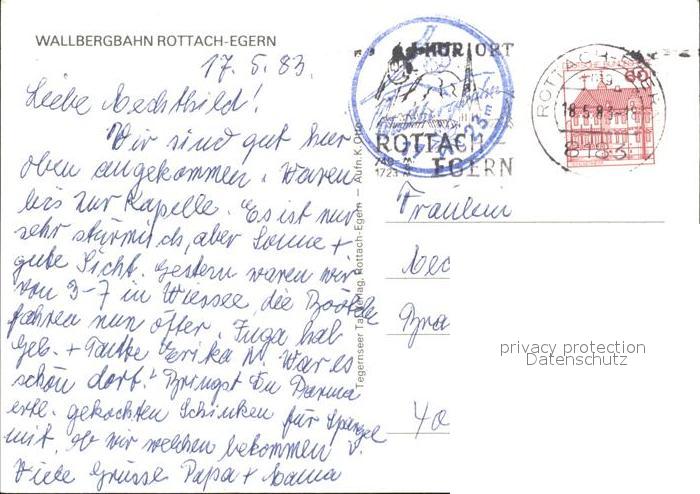 WALLBERGBAHN ROTTACH-EGERN
17.5.83.
Liebe Mechthild!
Wir sind gut hier
oben angekommen. Waren
bis zur Kapelle. Es ist nur
sehr stürmisch, aber Sonne +
gute Sicht. Gestern waren wir
von 3-7 in Wiessee, die Boote
fahren nun öfter. Inga hat
Geb. + Tante Erika N. War es
schön dort? Bringst Du Mama
evtl. gekochten Schinken für Spargel
mit, ob wir welchen bekommen?
Viele Grüsse Papa + Mama
Tegernseer Tal Verlag, Rottach-Egern — Aufn. K. Otto
KURORT
ROTTACH
EGERN
1723 m
ROTTACH-EGERN
18.5.83
8183
60
Fräulein
Mec
Bra
40
privacy protection
Datenschutz